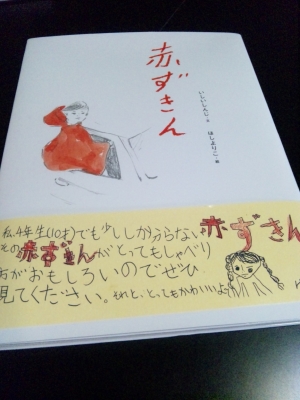 赤ずきん
いしいしんじ・文
ほしよりこ・絵
私、4年生(10才)でも少ししか分らない赤ずきん
その赤ずきんがとってもしゃべり
方がおもしろいのでぜひ
見てください。それと、とってもかわいいよ